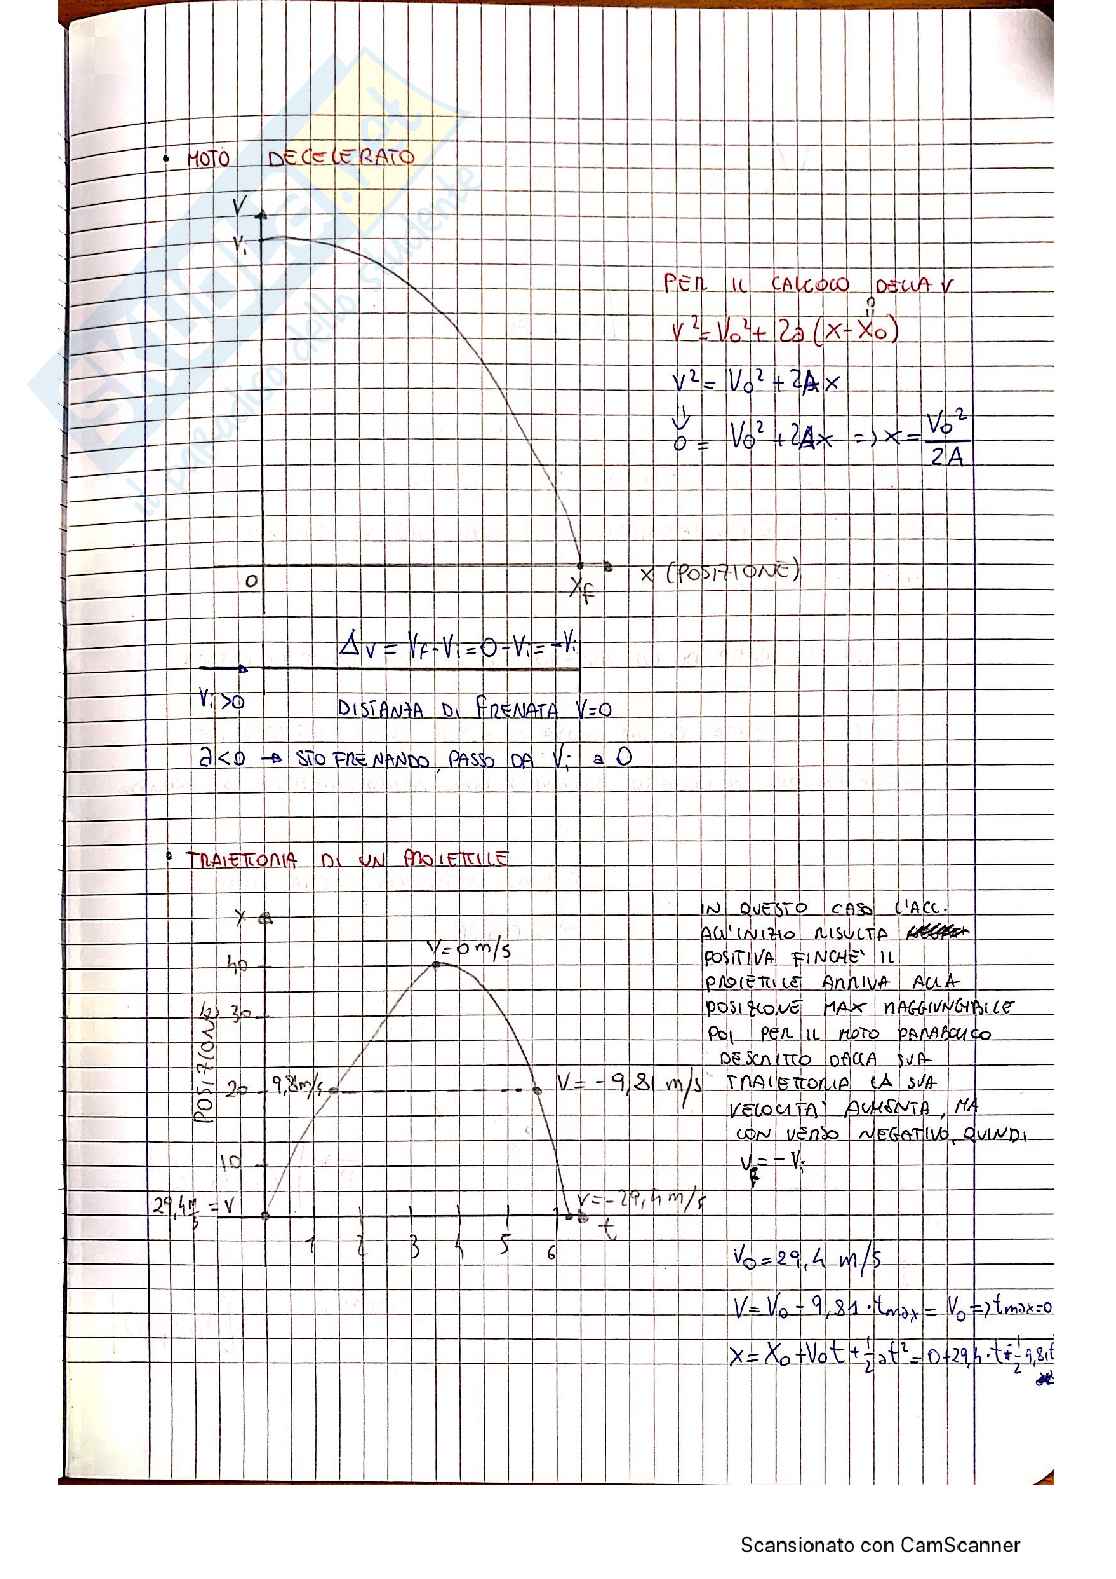 • MOTO DECELERATO
V
Vi
PER IL CALCOLO DELLA V
0
V² = V0² + 2a (X-X0)
V² = V0² + 2Ax
⇓
0 = V0² + 2Ax => x = V0²/2A
0
XF
X (POSIZIONE)
ΔV = VF-Vi = 0-Vi = -Vi
Vi>0
DISTANZA DI FRENATA V=0
a<0 → STO FRENANDO, PASSO DA Vi a 0
• TRAIETTORIA DI UN PROIETTILE
Y
POSIZIONE
V=0 m/s
40
30
20
9,8m/s
V= -9,81 m/s
10
29,4 m/s = V
V=-29,4 m/s
1 2 3 4 5 6
t
IN QUESTO CASO L'ACC.
ALL'INIZIO RISULTA
POSITIVA FINCHE' IL
PROIETTILE ARRIVA ALLA
POSIZIONE MAX RAGGIUNGIBILE
POI PER IL MOTO PARABOLICO
DESCRITTO DALLA SUA
TRAIETTORIA LA SUA
VELOCITA' AUMENTA, MA
CON VERSO NEGATIVO, QUINDI
VF = -Vi
V0 = 29,4 m/s
V = V0 - 9,81 · tmax = V0 => tmax=0
X = X0 + V0t + 1/2 at² = 0+29,4·t+ -1/2 9,81t
SKUOLA.net
il paradiso dello studente
Scansionato con CamScanner